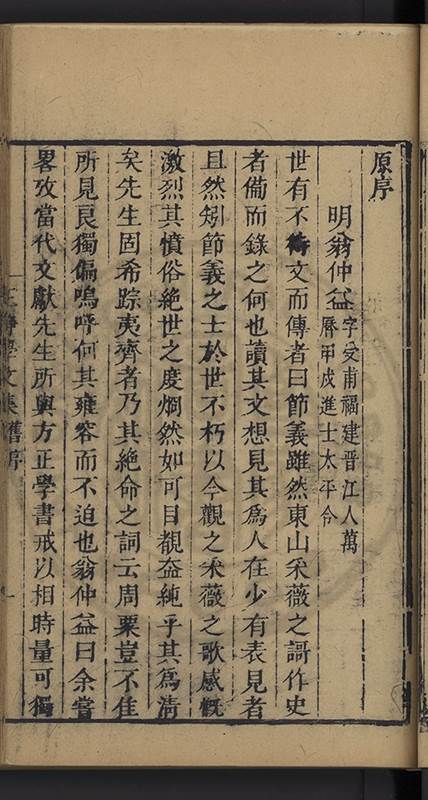 原序
明翁仲益字受甫福建晉江人萬
曆甲戌進士太平令
世有不待文而傳者曰節義雖然東山采薇之謌作史
者備而錄之何也讀其文想見其爲人在少有表見者
且然矧節義之士於世不朽以今觀之采薇之歌感慨
激烈其憤俗絕世之度烱然如可目覩益純乎其爲淸
矣先生固希踪夷齊者乃其絕命之詞云周粟豈不佳
所見良獨偏嗚呼何其雍容而不迫也翁仲益曰余嘗
畧攷當代文獻先生所與方正學書戒以相時量可獨
王靜學文集舊序
一